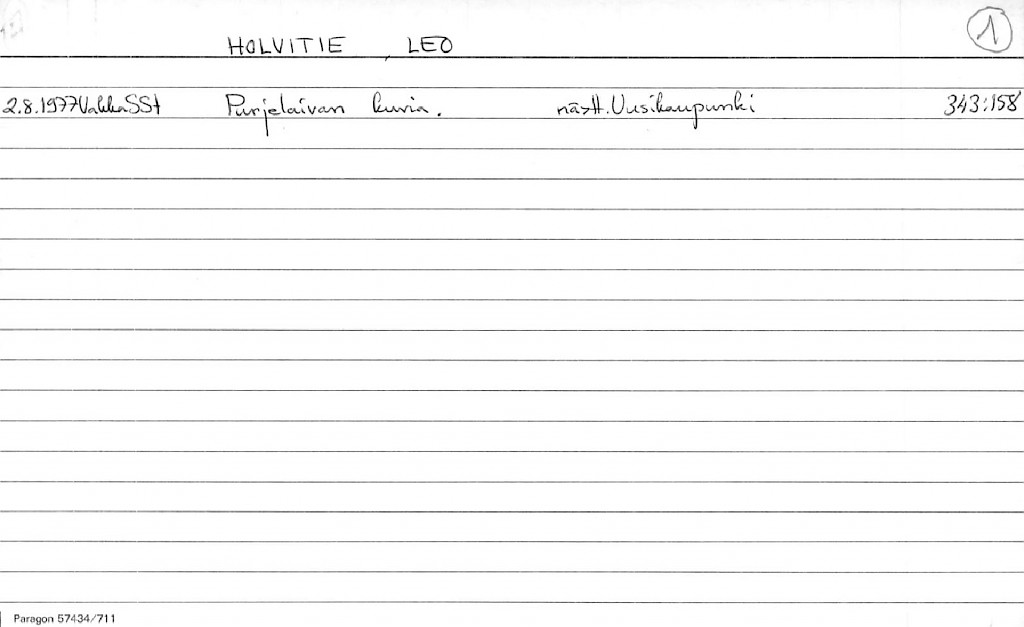 HOLVITIE, LEO 1
2.8.1977 VakkaSSt Purjelaivan kuvia. näytt. Uusikaupunki 343:158
Paragon 57434/711